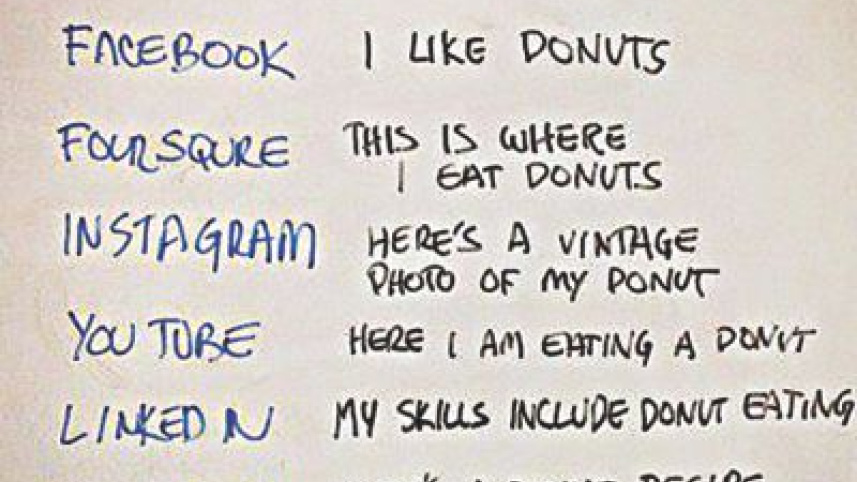 FACEBOOK I LIKE DONUTS
FOURSQURE THIS IS WHERE
I EAT DONUTS
INSTAGRAM HERE'S A VINTAGE
PHOTO OF MY DONUT
YOU TUBE HERE I AM EATING A DONUT
LINKED IN MY SKILLS INCLUDE DONUT EATING